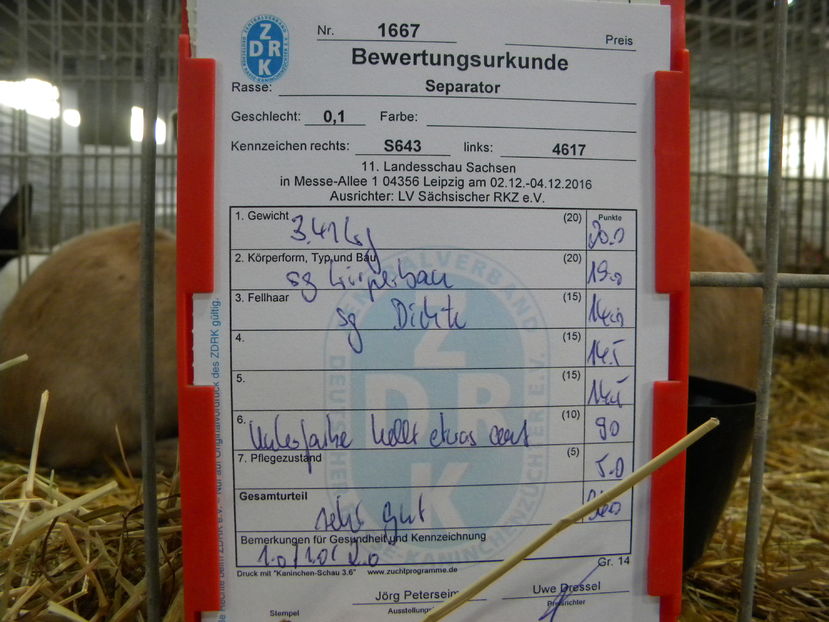 ZDRK
Nr. 1667
Preis
Bewertungsurkunde
Rasse: Separator
Geschlecht: 0,1 Farbe:
Kennzeichen rechts: S643 links: 4617
11. Landesschau Sachsen
in Messe-Allee 1 04356 Leipzig am 02.12.-04.12.2016
Ausrichter: LV Sächsischer RKZ e.V.
1. Gewicht (20) Punkte
3.41 kg 20.0
2. Körperform, Typ und Bau (20)
sg Körperbau 19.0
3. Fellhaar (15)
sg Dichte 14.0
4. (15) 14.5
5. (15) 14.5
6. (10)
etwas 9.0
7. Pflegezustand (5) 5.0
Gesamturteil
sehr gut
Bemerkungen für Gesundheit und Kennzeichnung
Druck mit "Kaninchen-Schau 3.6" www.zuchtprogramme.de Gr. 14
Jörg Peterseim Uwe Dressel
Stempel Preisrichter